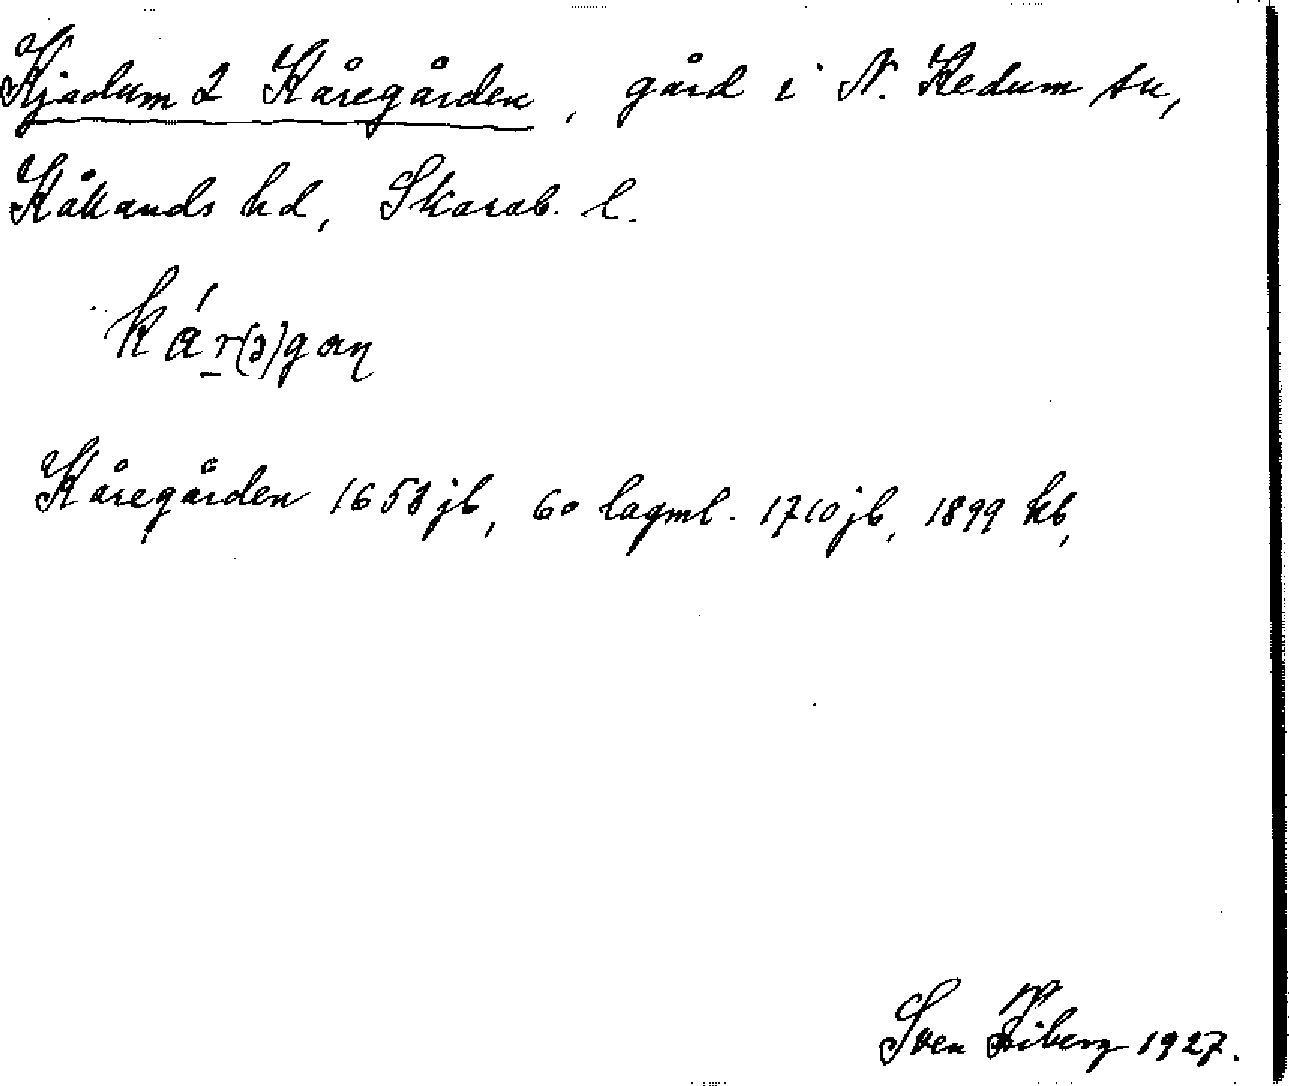 Kjadum 2 Kåregården, gård i N. Kedum sn,
Kåkands hd, Skarab. l.
kár(ə)gaɳ
Kåregården 1658 jb, 60 lagml. 1710 jb, 1899 kb,
Sven 1927.